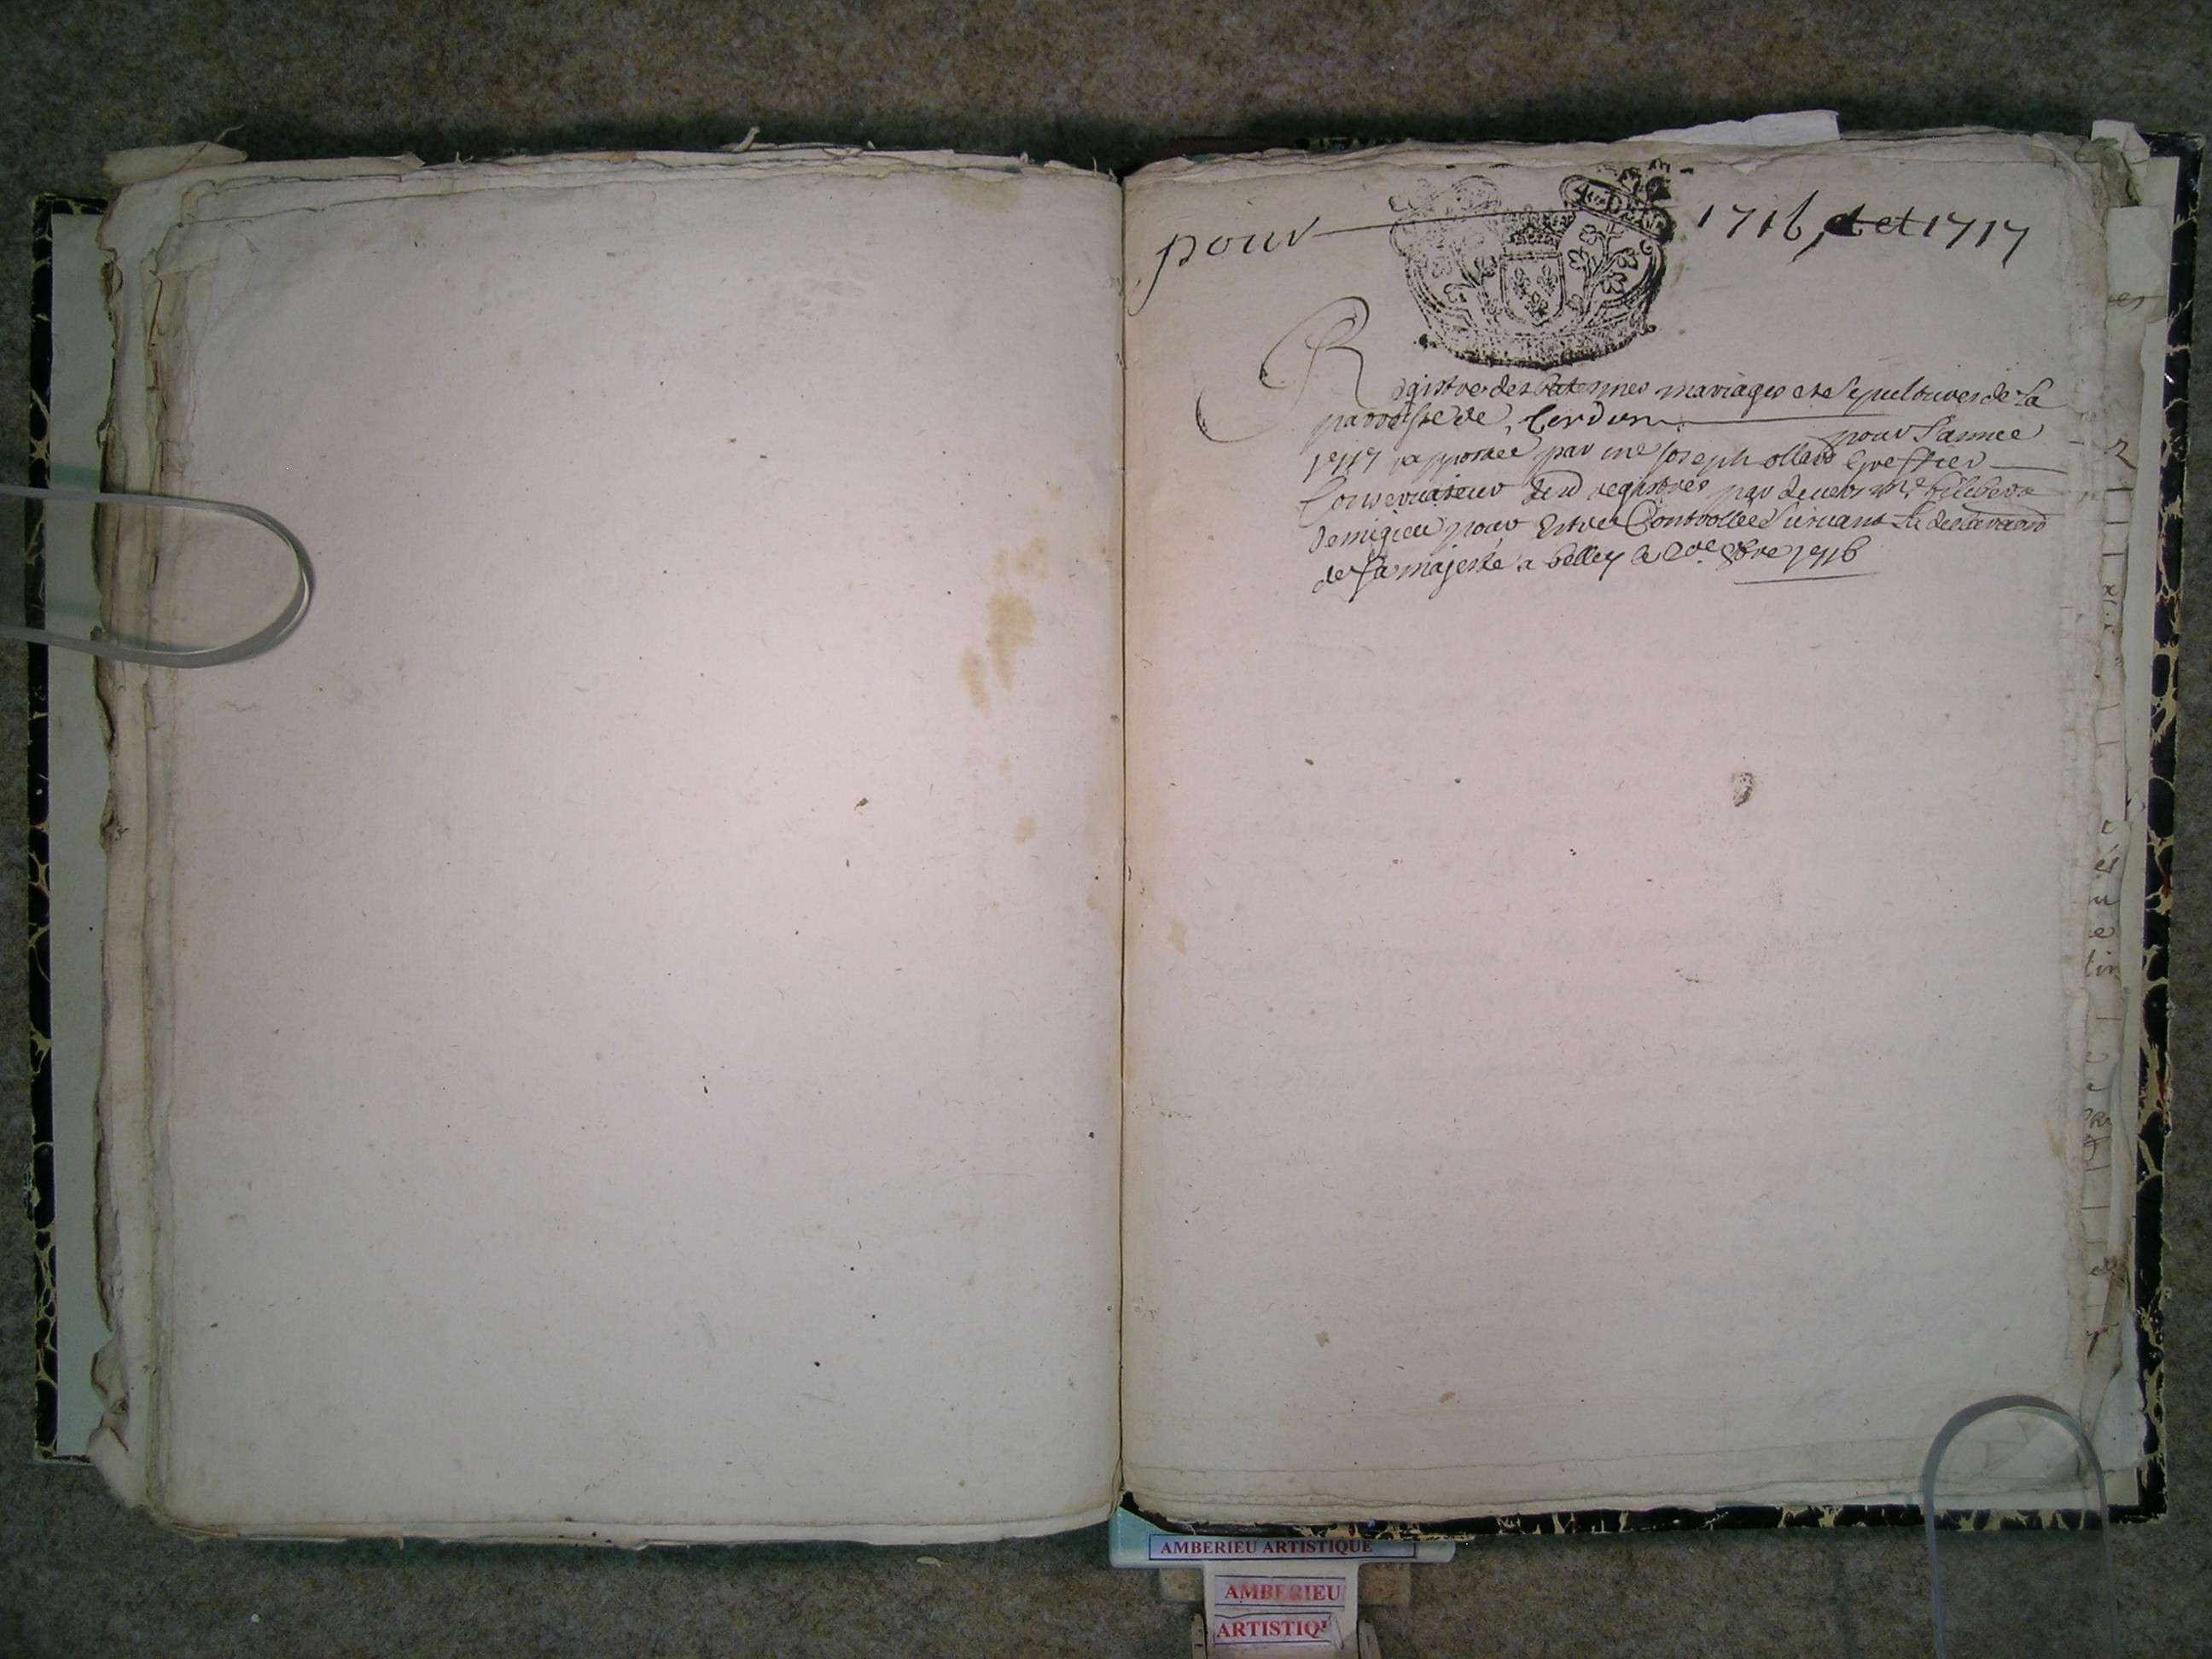 pour 1716, et 1717
Registre des batesmes mariages et sepultures de La
parroisse de Cerdon
pour l'annee
1717 rapportée par me Joseph ollard greffier
Conservateur desd registres par devers me
Demigieu pour Estre Controllée Suivant La declaration
de sa majesté a belley le xbre 1716
AMBERIEU ARTISTIQUE
AMBERIEU
ARTISTIQU